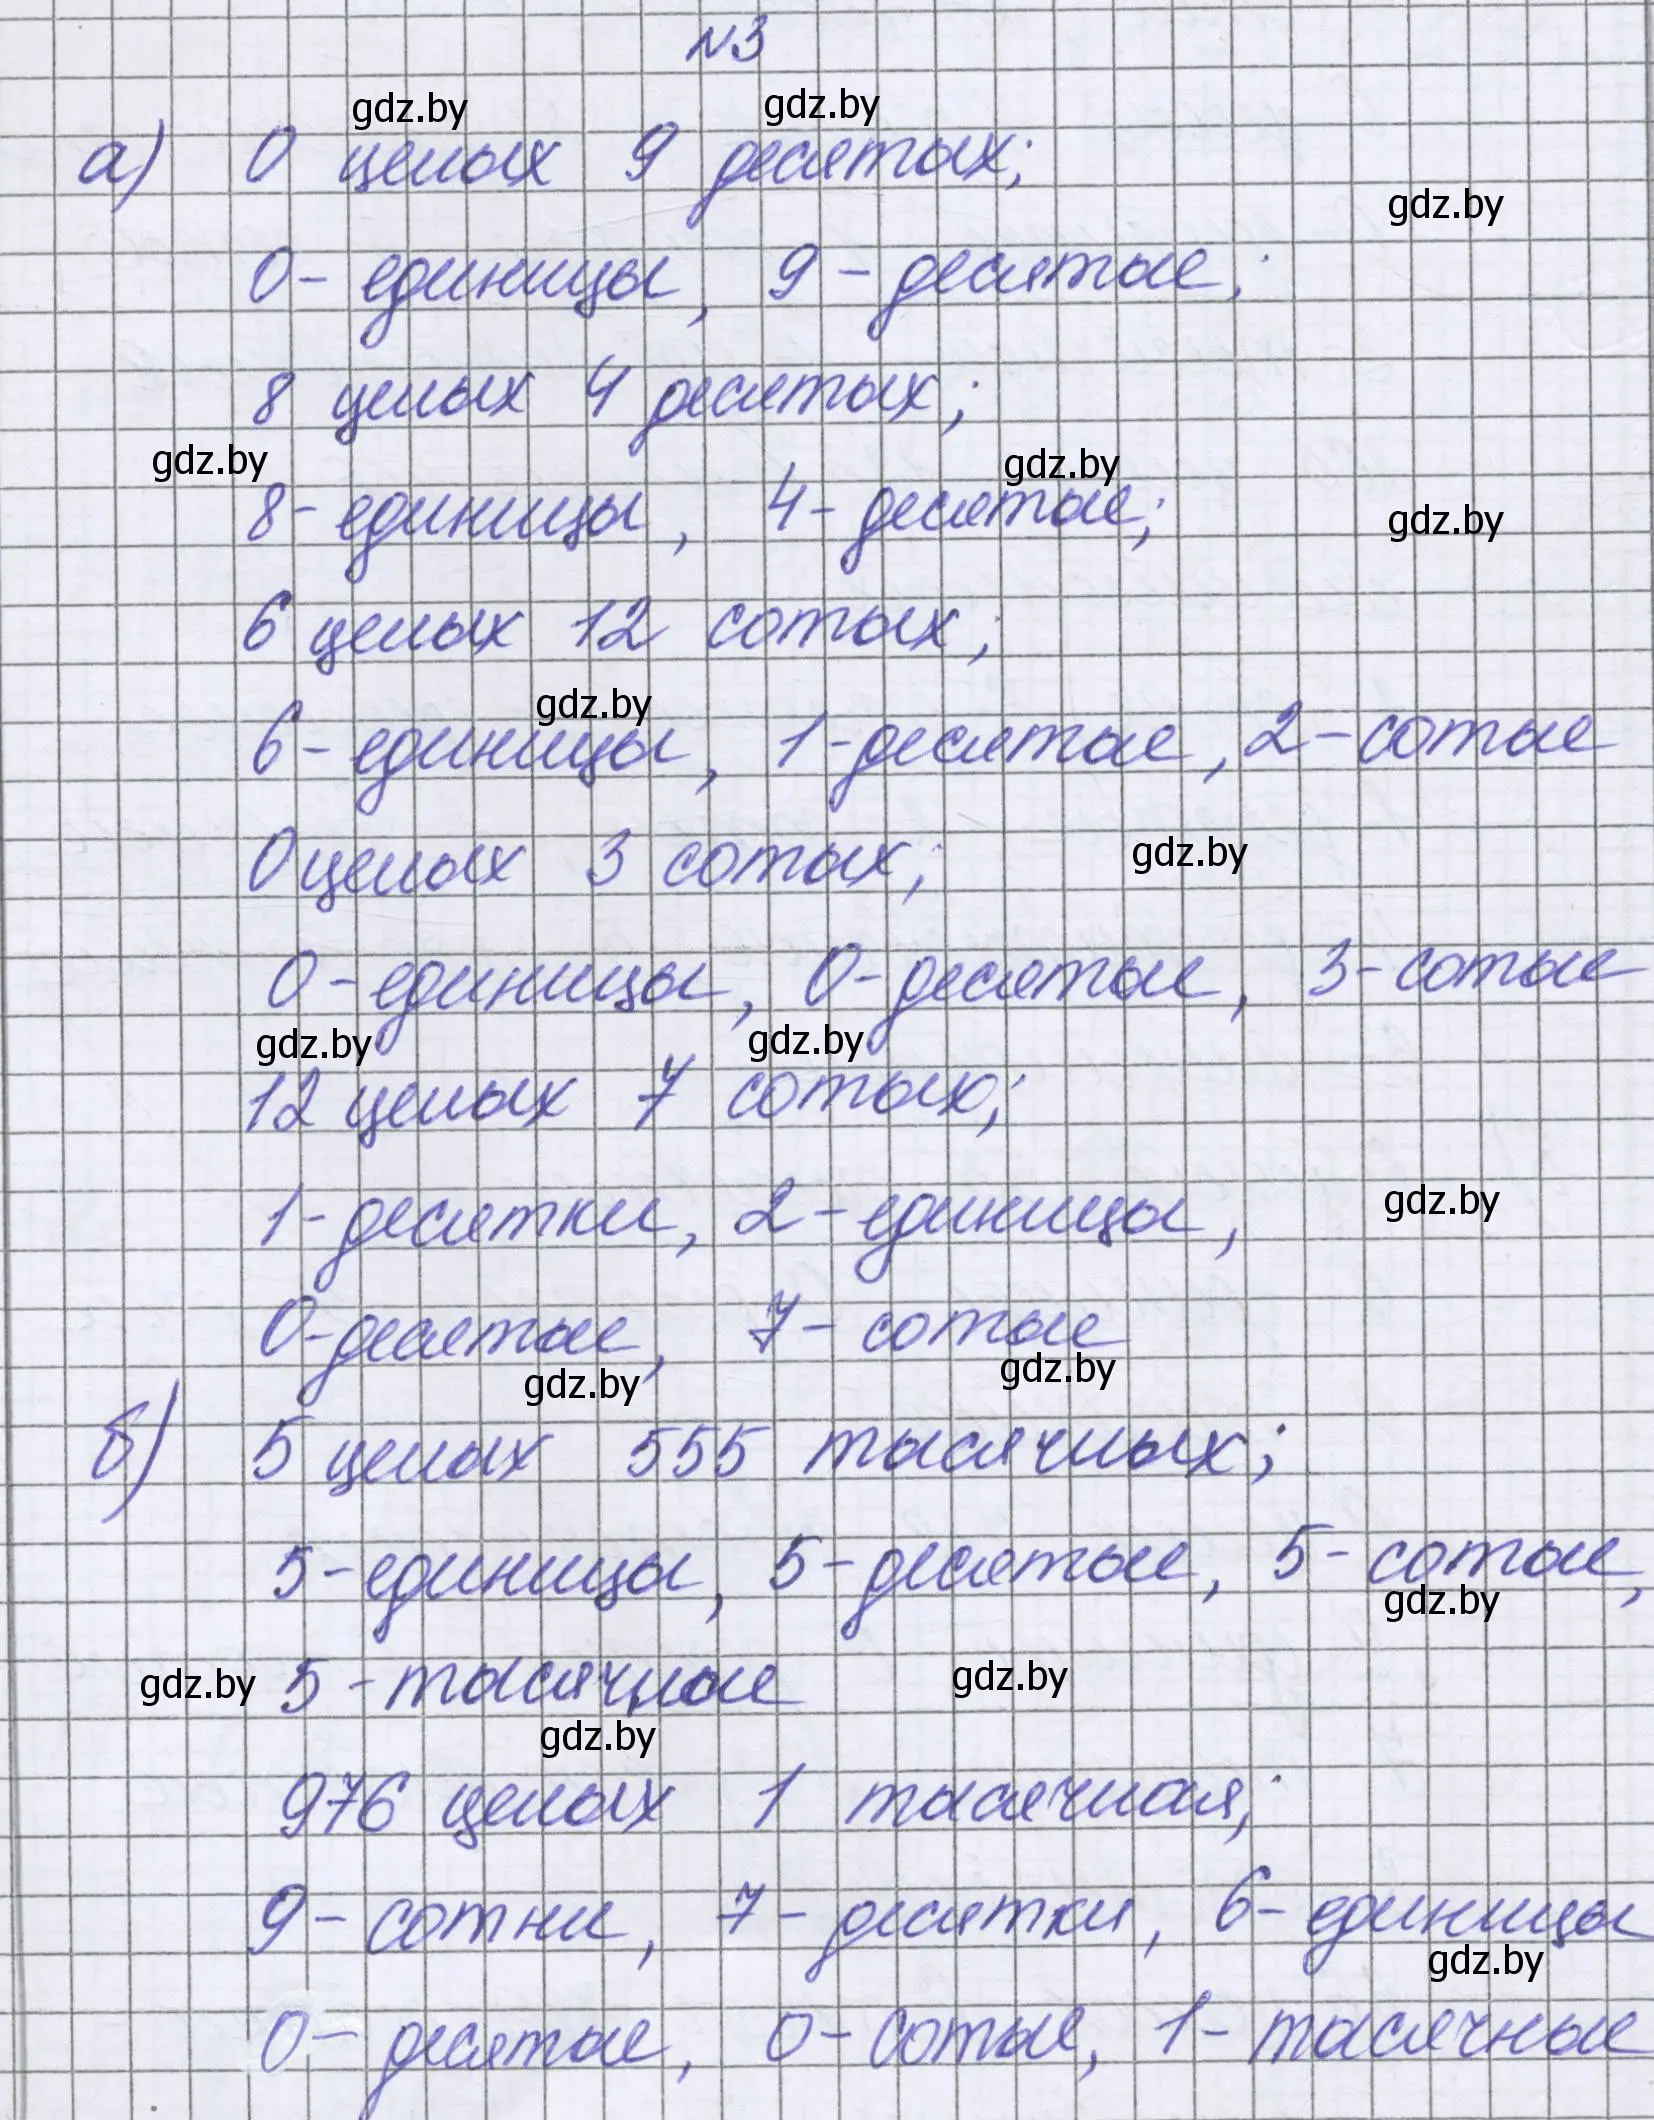 №3
gdz.by gdz.by
а) 0 целых 9 десятых;
gdz.by
0- единицы, 9 - десятые;
8 целых 4 десятых;
gdz.by gdz.by
8- единицы, 4- десятые;
gdz.by
6 целых 12 сотых;
gdz.by
6- единицы, 1-десятые, 2-сотые
0 целых 3 сотых;
gdz.by
0-единицы, 0-десятые, 3-сотые
gdz.by gdz.by
12 целых 7 сотых;
1-десятки, 2-единицы,
gdz.by
0-десятые, 7- сотые
gdz.by gdz.by
б) 5 целых 555 тысячных;
5-единицы, 5-десятые, 5- сотые,
gdz.by
gdz.by 5 -тысячные gdz.by
gdz.by
976 целых 1 тысячная;
9- сотни, 7- десятки, 6- единицы
gdz.by
0- десятые, 0- сотые, 1- тысячные